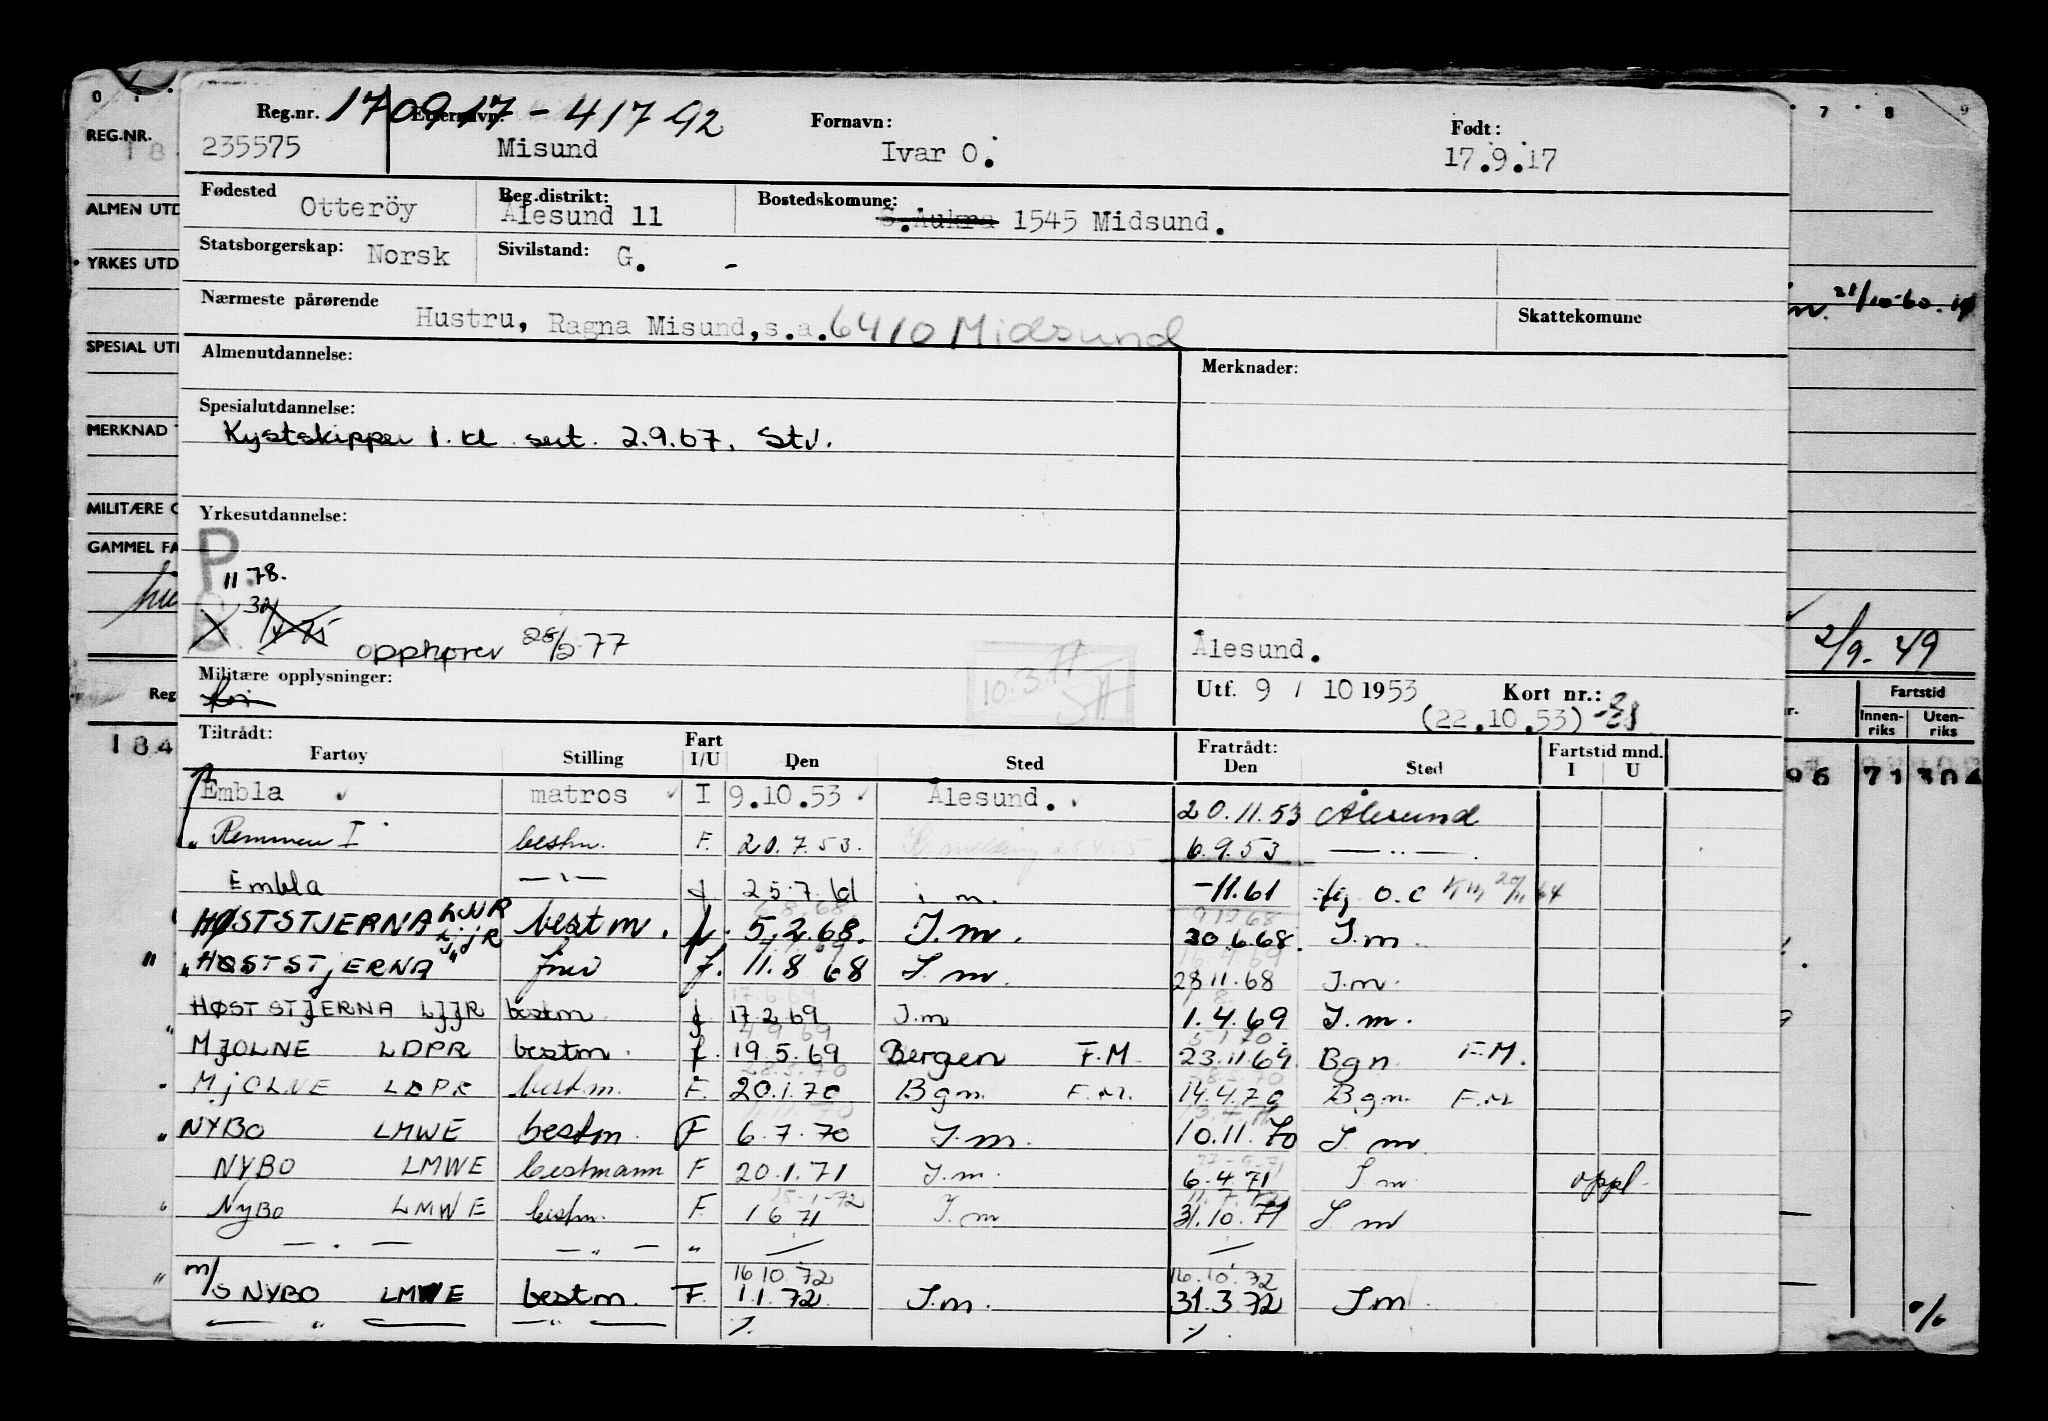 Reg.nr. 170917 - 41792 Fornavn: Født:
235575 Misund Ivar O. 17.9.17
Fødested Otteröy Reg.distrikt: Ålesund 11 Bostedskomune: S.Aukra 1545 Midsund.
Statsborgerskap: Norsk Sivilstand: G. -
Nærmeste pårørende Hustru, Ragna Misund, s.a. 6410 Midsund Skattekomune
Almenutdannelse: Merknader:
Spesialutdannelse:
Kystskipper 1. kl sert. 2.9.67. Stv.
Yrkesutdannelse:
P.
11 78.
32
opphører 77
Ålesund.
Militære opplysninger:
Utf. 9 / 10 1953 Kort nr.:
(22.10.53)
10.3.77
Tiltrådt: Fratrådt: Fartstid mnd.
Fartøy Stilling Fart I/U Den Sted Den Sted I U
Embla matros I 9.10.53 Ålesund. 20.11.53 Ålesund
" Remmen I bestm. F. 20.7.53. 6.9.53 — " —
Embla — " — 25.7.61 i m. -11.61
HØSTSTJERNA bestm. f. 5.2.68. I.m. 30.6.68. I.m.
" HØSTSTJERNA LJJR f. 11.8 68 I.m. 28 11.68 I.m.
HØSTSTJERNA LJJR bestm f 17 2 69 I.m 1.4.69 I.m.
MJOLNE LDPR bestm. f. 19.5.69 Bergen F.M. 23.11.69. Bgn. F.M.
MJOLNE LDPR bestm. F. 20.1.70 Bgn. F.M. 14.4.70 Bgn. F.M
" NYBO LMWE bestm. F 6.7.70 I.m. 10.11.70 I m.
NYBO LMWE bestmann F 20.1.71 I.m. 6.4.71 I m. oppl.
NYBO LMWE bestm. F. 1 6 71 I.m 31.10.71 I m
— " — — " — "
16 10.72 16.10.72
m/s NYBO LMWE bestm. F. 1.1.72 I.m. 31.3 72 I m
— " — — " —
REG.NR.
ALMEN UTD
YRKES UTD
SPESIAL UT
MERKNAD
MILITÆRE
GAMMEL FA
Reg
184
7 8 9
21/10-60.
2/9. 49
Fartstid
Innen-riks Uten-riks
96 71 304